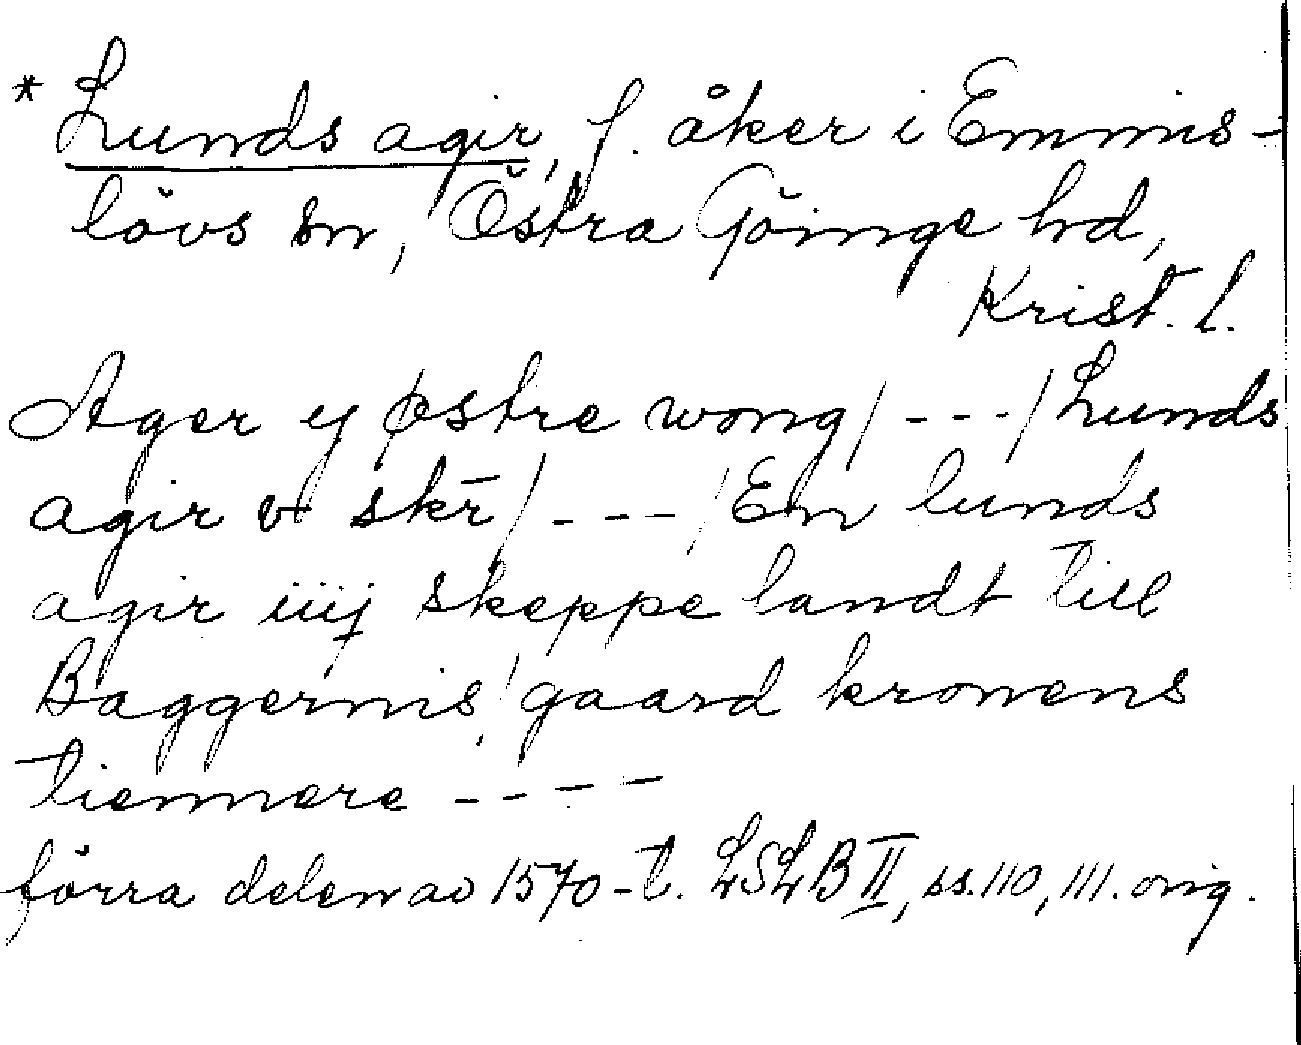 * Lunds agir, f. åker i Emmis-
lövs sn, Östra Göinge hd,
Krist. l.
Ager y østre wong/---/Lunds
agir v skr̄/---/En lunds
agir iiij skeppe landt till
Baggernis gaard kronens
tiennere ----
förra delen av 1570-t. LSLB II, ss. 110, 111. orig.